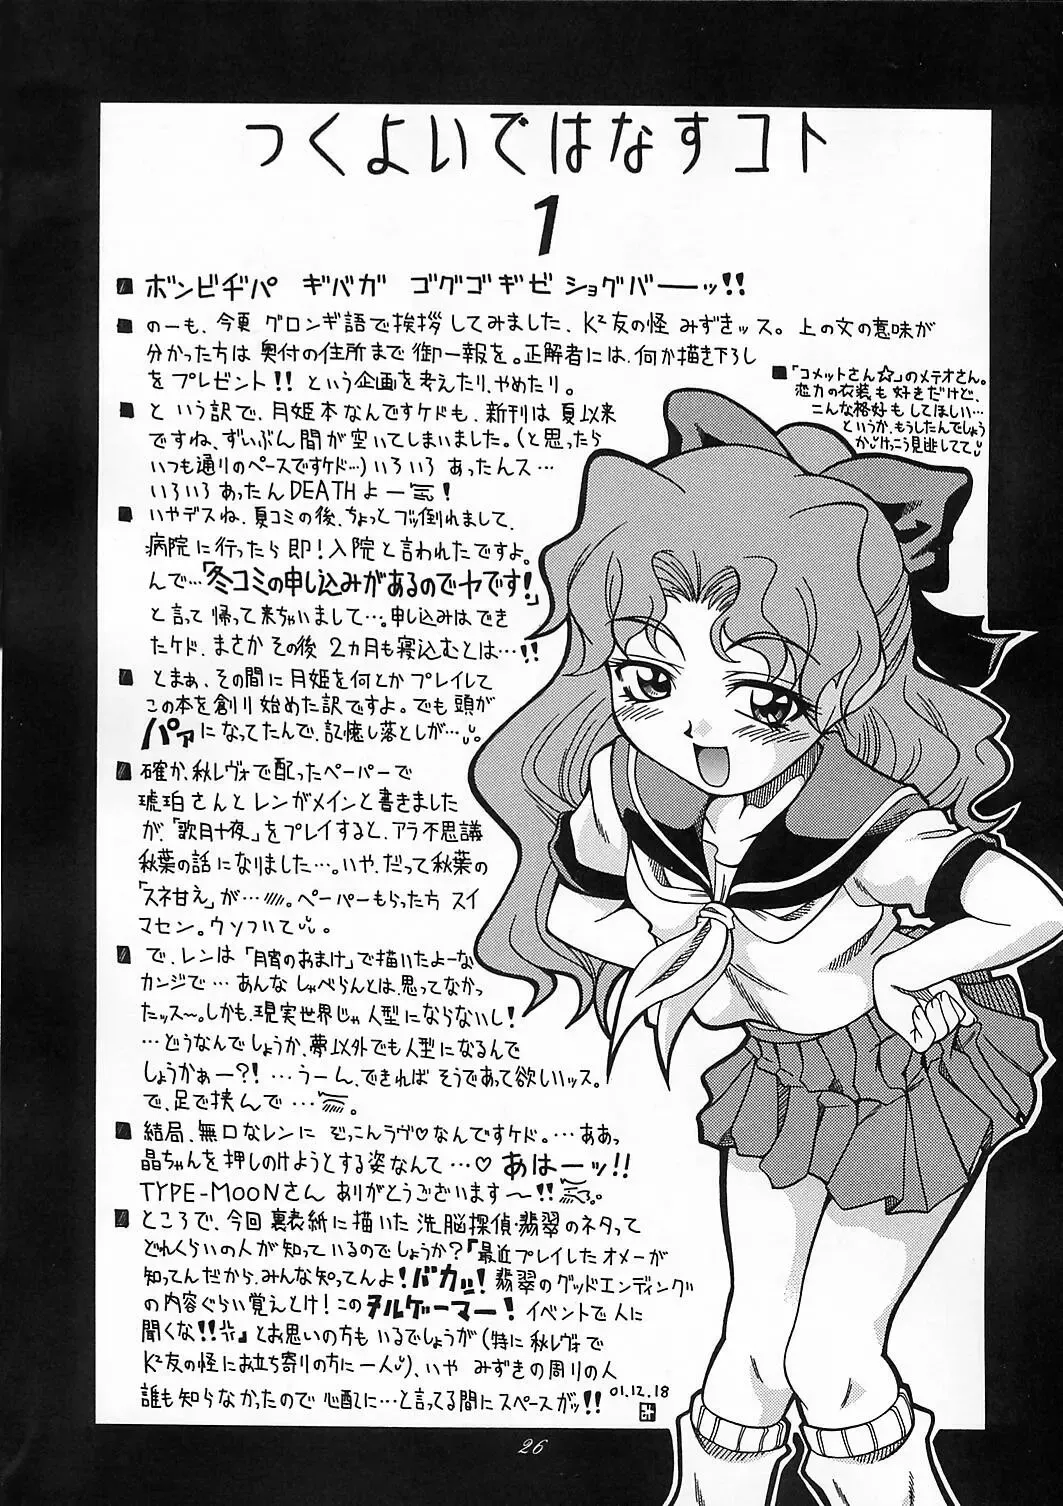 つくよいではなすコト
1
■ ボンビヂパ ギバガ ゴグゴギゼ ショグバーーッ!!
■ のーも、今更 グロンギ語で挨拶してみました、K²友の怪 みずきッス。上の文の意味が
分かった方は 奥付の住所まで 御一報を。正解者には、何か描き下ろし
をプレゼント!! という企画を考えたり、やめたり。
■ と いう訳で、月姫本なんですケドも、新刊は 夏以来
ですね、ずいぶん間が空いてしまいました。(と思ったら
いつも通りのペースですケド…)いろいろ あったんス…
いろいろあったんDEATHよー!
■ いやデスね、夏コミの後、ちょっとブッ倒れまして、
病院に行ったら 即!入院と言われたですよ。
んで…「冬コミの申し込みがあるのでヤです!」
と言って 帰って来ちゃいまして…。申し込みは でき
たケド、まさか その後 2ヵ月も寝込むとは…!!
■ とまぁ、その間に月姫を何とか プレイして
この本を創り始めた訳ですよ。でも頭が
パァになってたんで、記憶し落としが…。
■ 確か、秋レヴォで配ったペーパーで
琥珀さんとレンがメインと書きました
が、「歌月十夜」をプレイすると、アラ不思議
秋葉の話になりました…。いや、だって秋葉の
「スネ甘え」が…。ペーパーもらった方 スイ
マセン。ウソついて。
■ で、レンは「月宵のおまけ」で描いたよーな
カンジで… あんな しゃべらんとは、思ってなかっ
たッス〜。しかも、現実世界じゃ 人型にならないし!
…どうなんでしょうか、夢以外でも人型になるんで
しょうかぁー?! …うーん、できれば そうであって欲しいッス。
で、足で挟んで…。
■ 結局、無口なレンに ぞっこんラヴ♡なんですケド。…ああっ
晶ちゃんを押しのけようとする姿なんて…♡ あはーッ!!
TYPE-MOONさん ありがとうございます〜!!
■ ところで、今回 裏表紙に描いた 洗脳探偵・翡翠のネタって
どれくらいの人が知っているのでしょうか?「最近プレイしたオメーが
知ってんだから、みんな知ってんよ!バカッ!翡翠のグッドエンディング
の内容ぐらい覚えとけ!この ヌルゲーマー! イベントで人に
聞くな!!』とお思いの方も いるでしょうが(特に 秋レヴォで
K²友の怪にお立ち寄りの方に一人)、いや みずきの周りの人
誰も知らなかったので 心配に…と言ってる間に スペースがッ!! 01.12.18
み
■「コメットさん☆」のメテオさん。
恋力の衣装も好きだけど、
こんな格好もしてほしい…
というか、もうしたんでしょう
か けっこう見逃してて
26